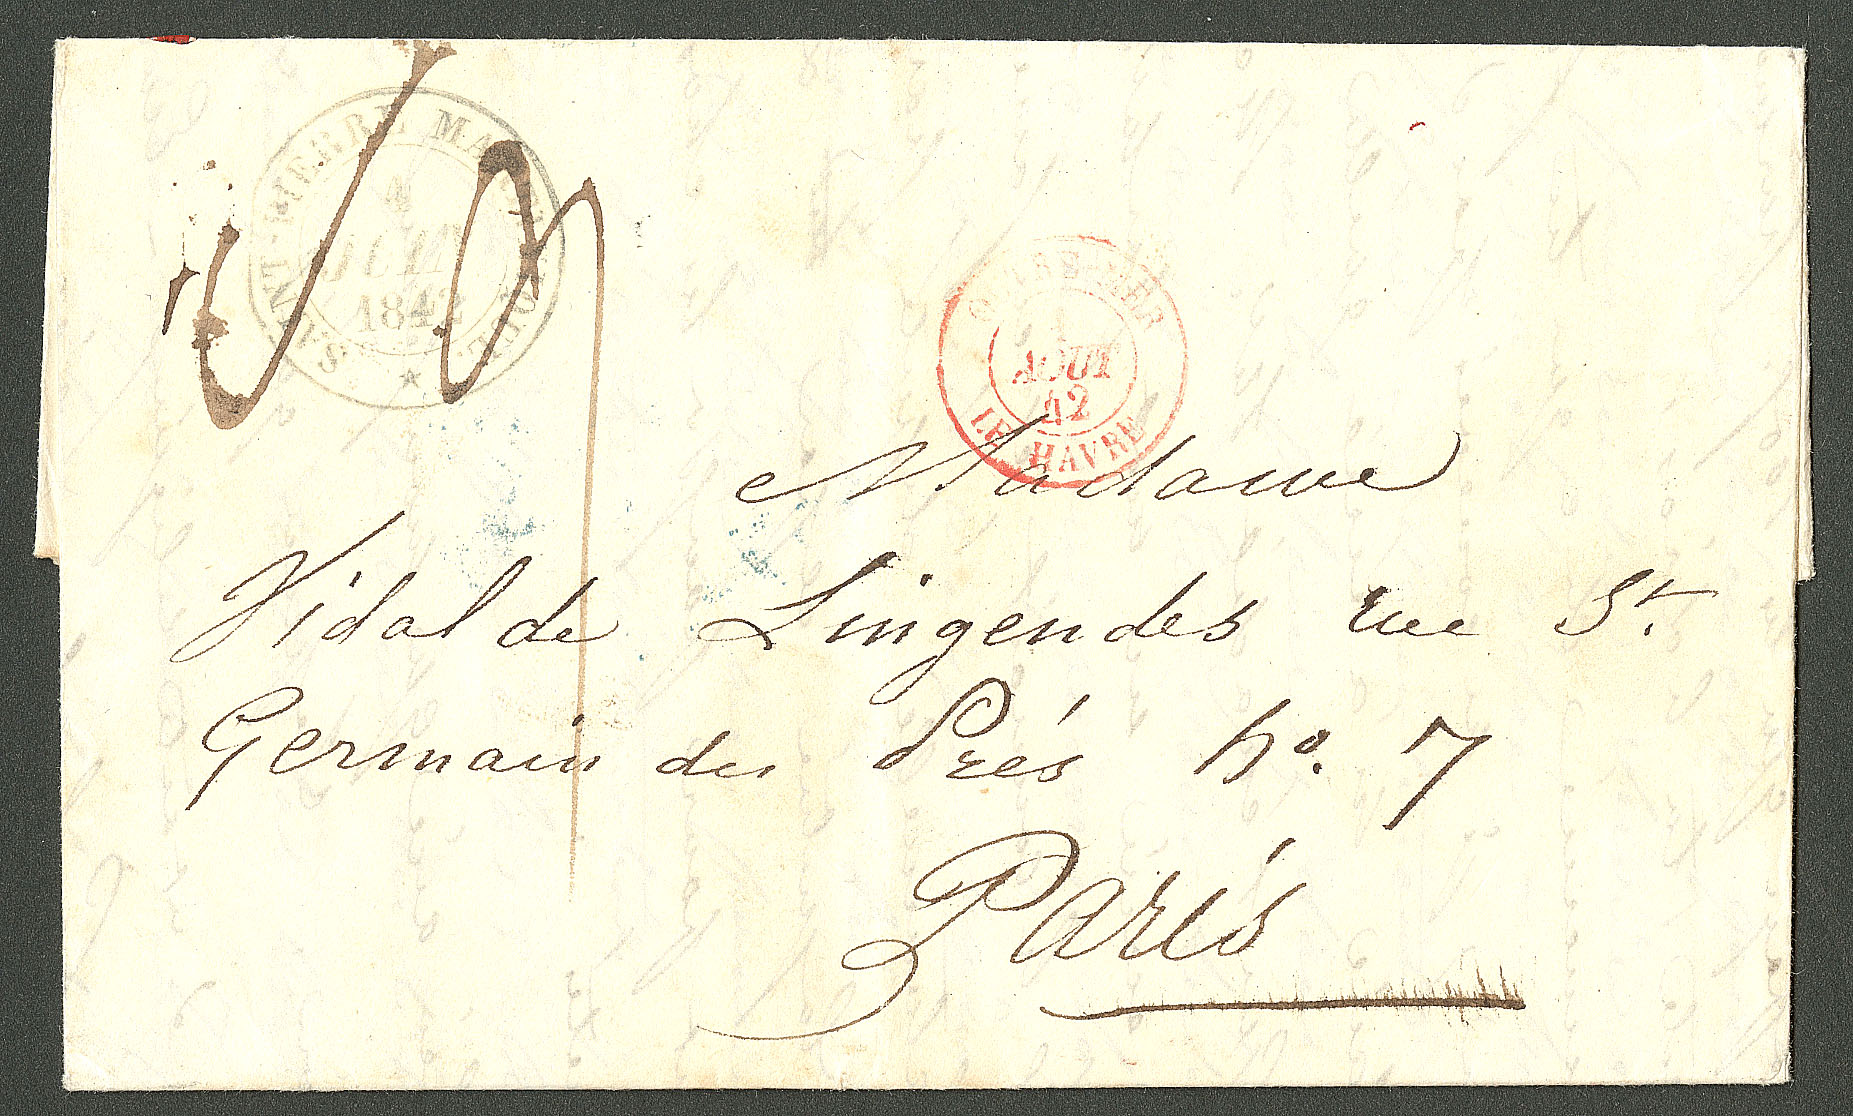 SAINT-PIERRE MARTINIQUE
1842
OUTRE-MER
1
AOUT
42
LE HAVRE
Madame
Vidal de Lingendes rue St.
Germain des Prés No. 7
Paris